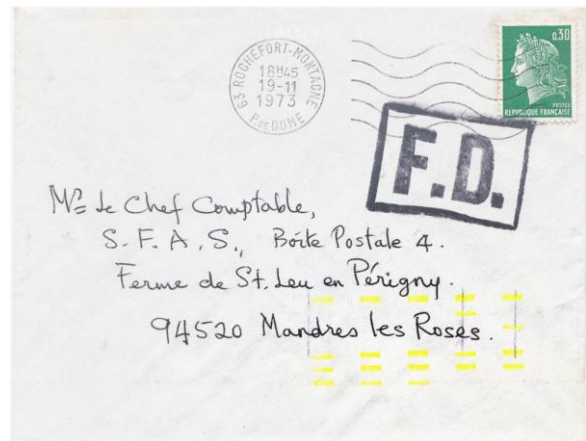 63 ROCHEFORT-MONTAGNE
18H45
19-11
1973
P. DE DOME
0,30
POSTES
REPUBLIQUE FRANÇAISE
F.D.
Mr le Chef Comptable,
S.F.A.S., Boîte Postale 4.
Ferme de St. Leu en Périgny.
94520 Mandres les Roses.